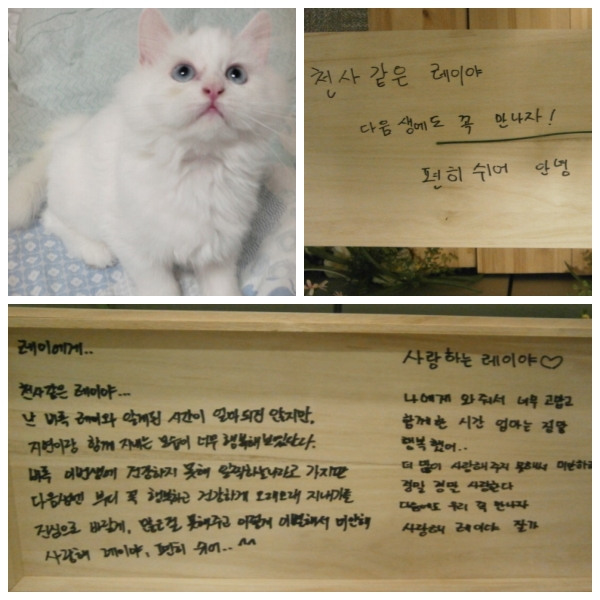 천사 같은 레이야
다음 생에도 꼭 만나자!
편히 쉬어 안녕
레이에게..
천사같은 레이야...
난 비록 레이와 알게된 시간이 얼마되진 않지만,
지연이랑 함께 지내는 모습이 너무 행복해보였단다.
비록 이번생에 건강하지 못해 일찍 떠나라고 가지만
다음생엔 부디 꼭 행복하고 건강하게 오래오래 지내기를
진심으로 바랄게, 많은걸 못해주고 이렇게 이별해서 미안해
사랑해 레이야, 편히 쉬어.. ^^
사랑하는 레이야♡
나에게 와줘서 너무 고맙고
함께 한 시간 엄마는 정말
행복했어..
더 많이 사랑해주지 못해서 미안하
정말 정말 사랑한다
다음에도 우리 꼭 만나자
사랑해 레이야 잘가